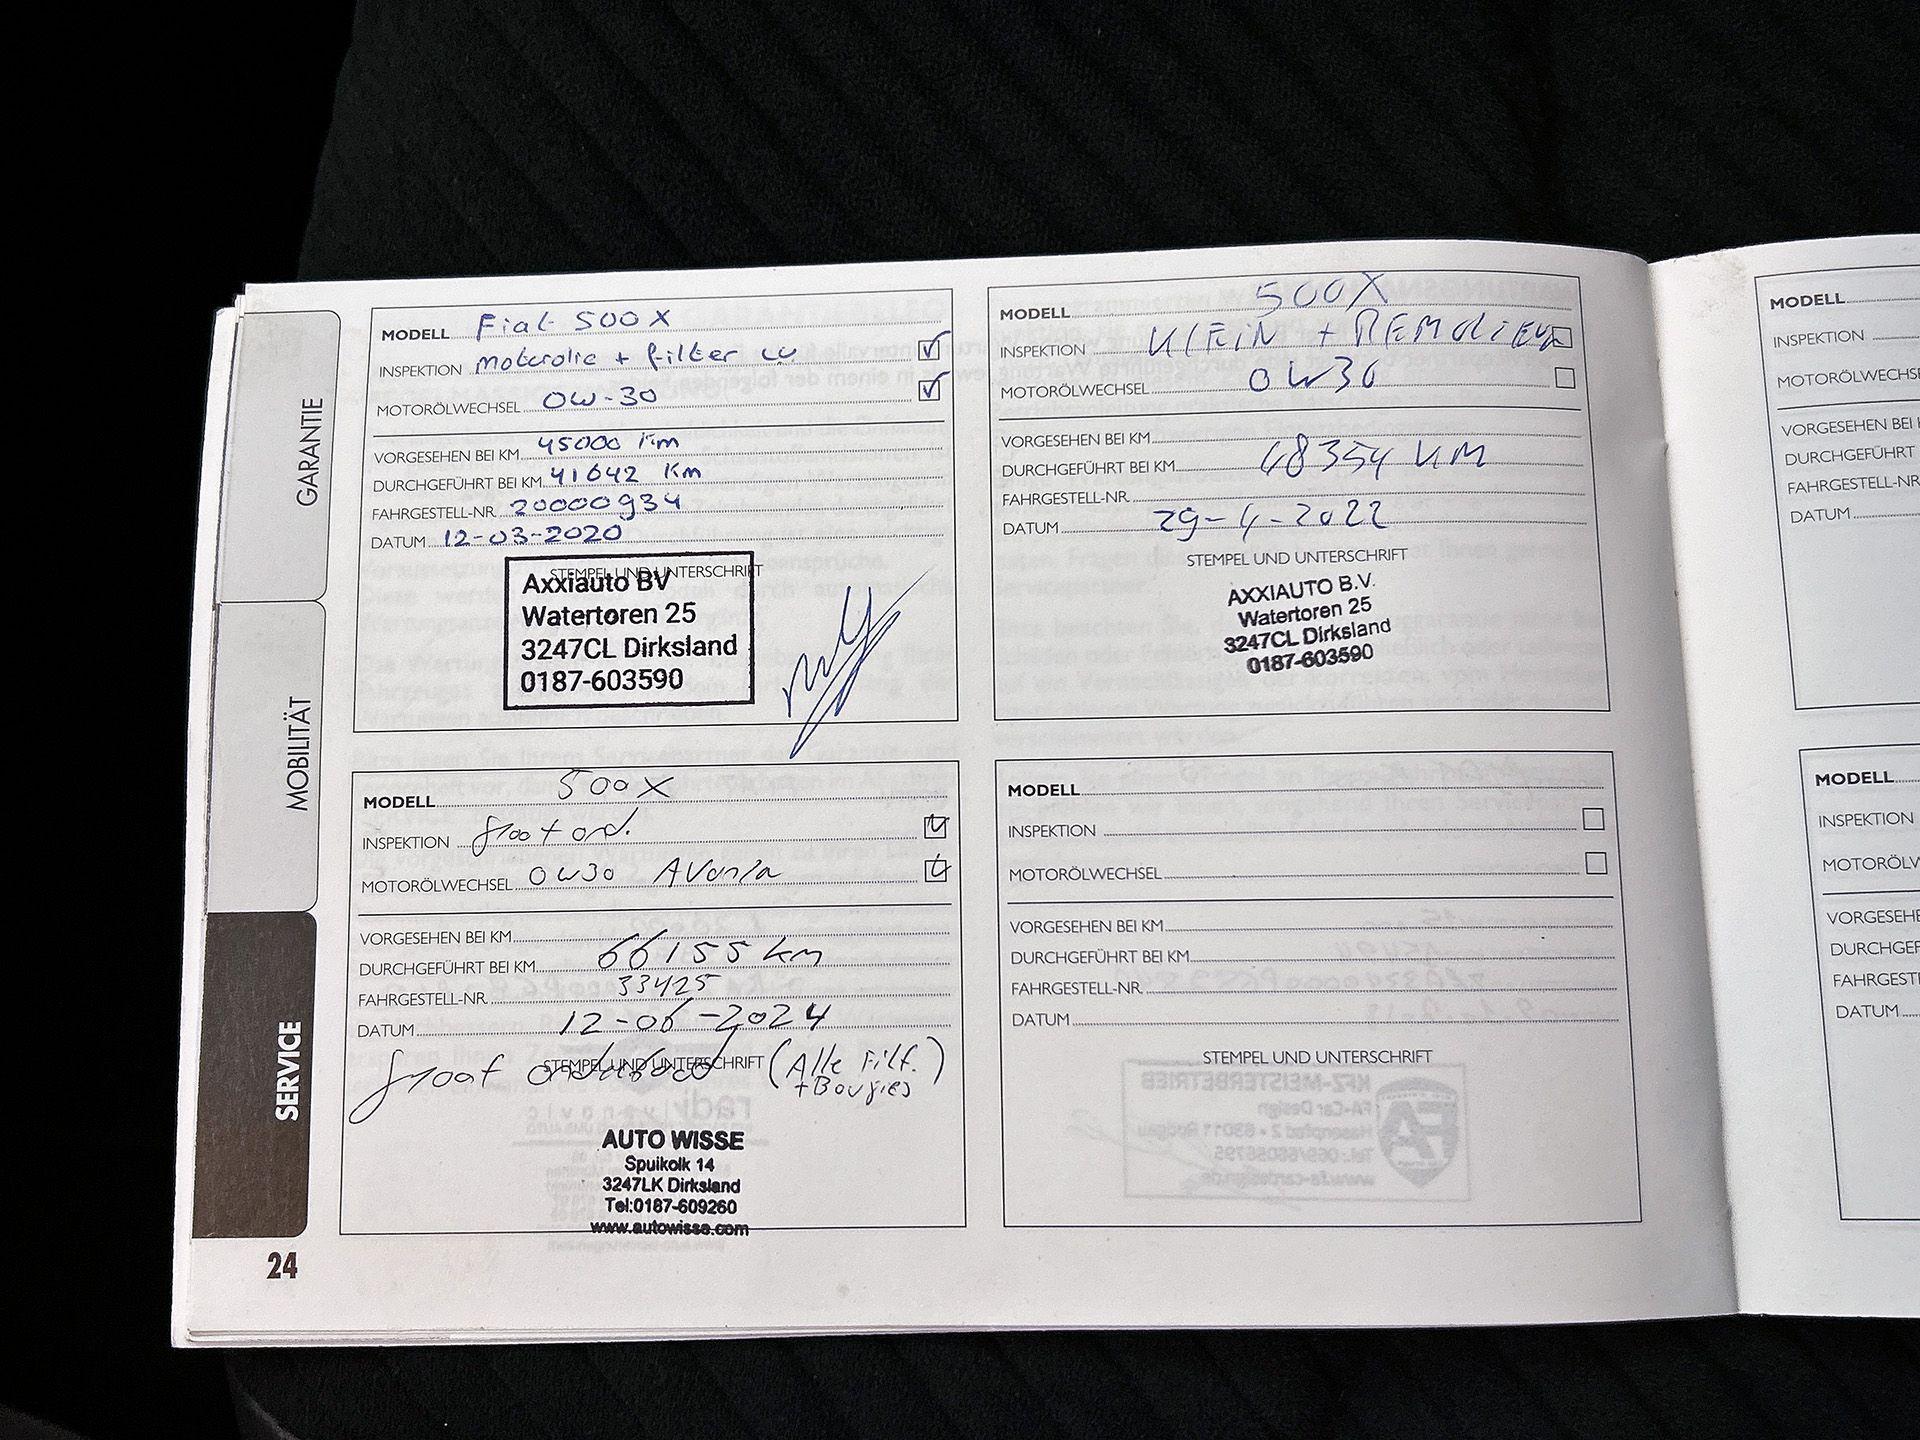 GARANTIE
MOBILITÄT
SERVICE
24
MODELL Fiat 500X
INSPEKTION motorolie + filter
MOTORÖLWECHSEL 0W-30
VORGESEHEN BEI KM 45000 Km
DURCHGEFÜHRT BEI KM 41642 Km
FAHRGESTELL-NR. 20000934
DATUM 12-03-2020
STEMPEL UND UNTERSCHRIFT
Axxiauto BV
Watertoren 25
3247CL Dirksland
0187-603590
MODELL 500X
INSPEKTION KLEIN +
MOTORÖLWECHSEL 0W30
VORGESEHEN BEI KM
DURCHGEFÜHRT BEI KM 48354 KM
FAHRGESTELL-NR.
DATUM 29-4-2022
STEMPEL UND UNTERSCHRIFT
AXXIAUTO B.V.
Watertoren 25
3247CL Dirksland
0187-603590
MODELL 500X
INSPEKTION groot ond.
MOTORÖLWECHSEL 0W30
VORGESEHEN BEI KM
DURCHGEFÜHRT BEI KM 66155 km
FAHRGESTELL-NR. 33425
DATUM 12-06-2024
STEMPEL UND UNTERSCHRIFT
groot (Alle Filt.
+ Bougies)
AUTO WISSE
Spuikolk 14
3247LK Dirksland
Tel:0187-609260
www.autowisse.com
MODELL
INSPEKTION
MOTORÖLWECHSEL
VORGESEHEN BEI KM
DURCHGEFÜHRT BEI KM
FAHRGESTELL-NR.
DATUM
STEMPEL UND UNTERSCHRIFT
MODELL
INSPEKTION
MOTORÖLWECHSE
VORGESEHEN BEI
DURCHGEFÜHRT
FAHRGESTELL-NR
DATUM
MODELL
INSPEKTION
MOTORÖLW
VORGESEHE
DURCHGEF
FAHRGEST
DATUM